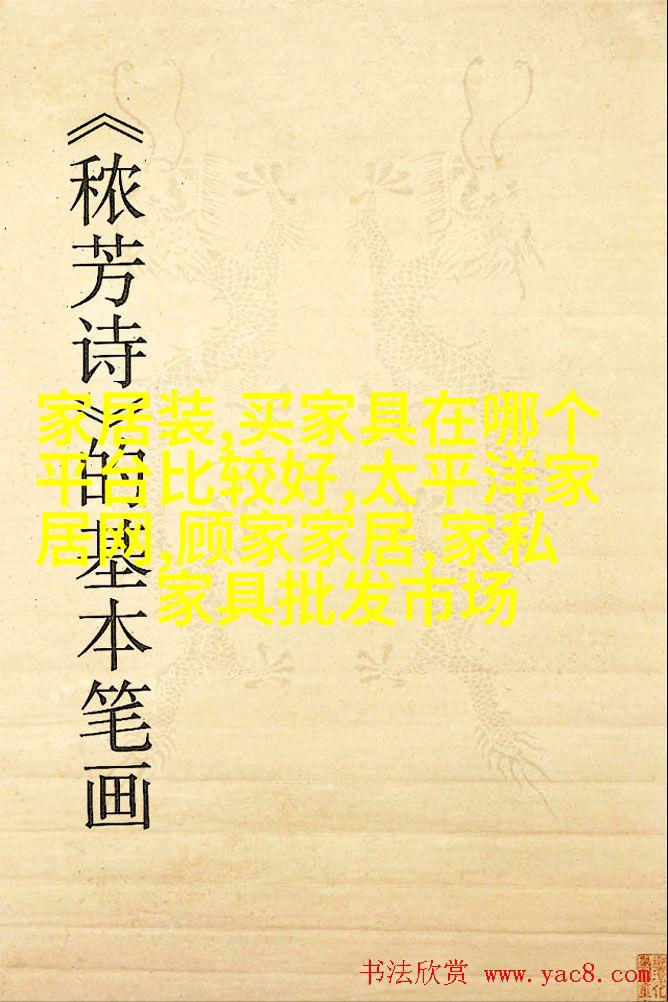 《秾芳诗》的基本笔画
家居装,买家具在哪个
平台比较好,太平洋家
居网,顾家家居,家私
家具批发市场
书法欣赏 www.yac8.com